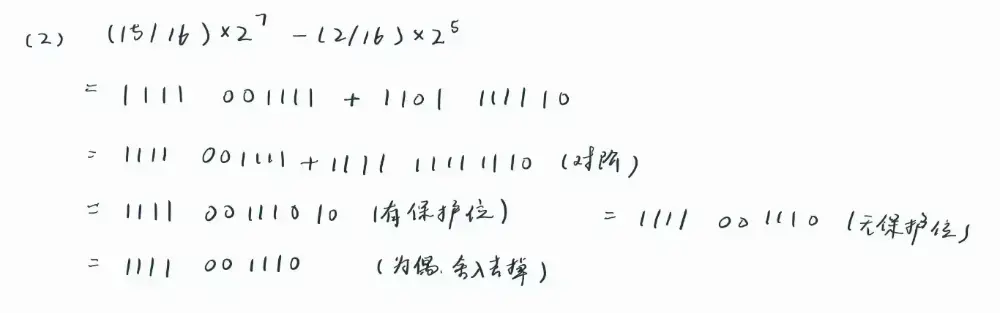 (2) (15/16)×2^7 -(2/16)×2^5
= 1111 001111 + 1101 111110
= 1111 001111 + 1111 11111110 (对阶)
= 1111 00111010 (有保护位) = 1111 001110 (无保护位)
= 1111 001110 (为偶.舍入去掉)